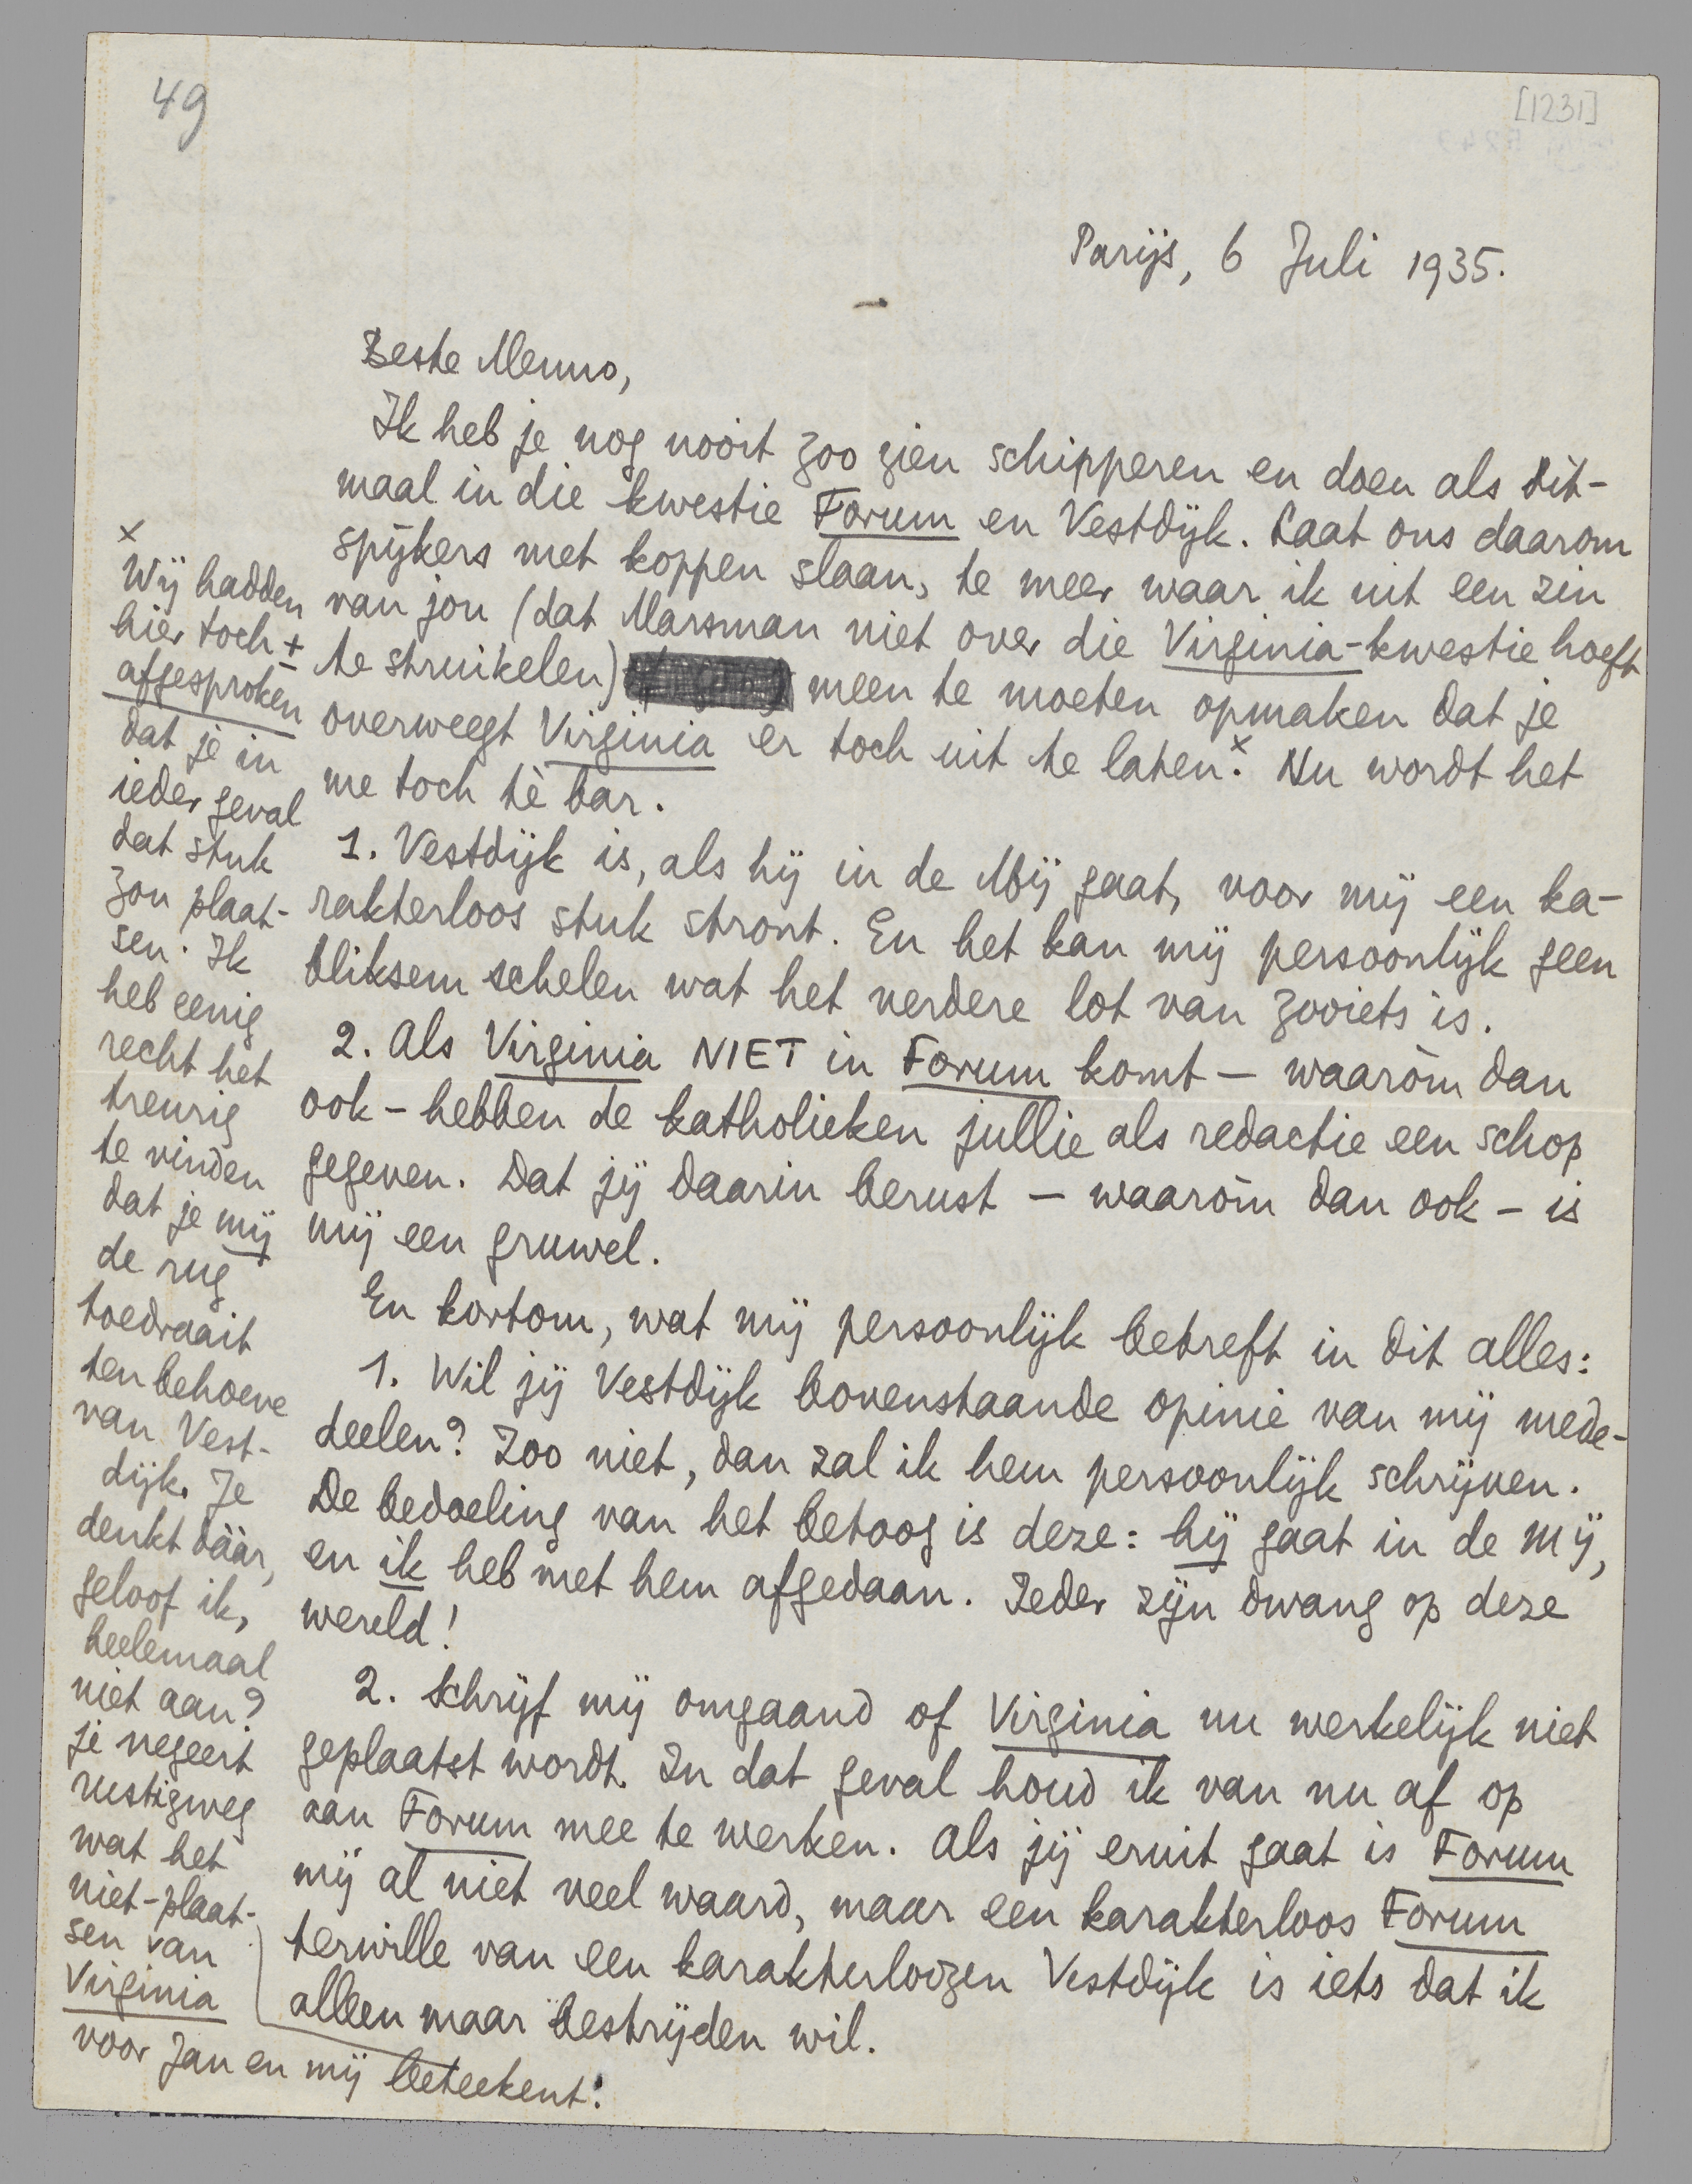 49
[1231]
Parijs, 6 Juli 1935.
Beste Menno,
Ik heb je nog nooit zoo zien schipperen en doen als dit-
maal in die kwestie Forum en Vestdijk. Laat ons daarom
spijkers met koppen slaan, te meer waar ik uit een zin
van jou (dat Marsman niet over die Virginia-kwestie hoeft
te struikelen) meen te moeten opmaken dat je
overweegt Virginia er toch uit te laten.x Nu wordt het
me toch tè bar.
1. Vestdijk is, als hij in de Mij gaat, voor mij een ka-
rakterloos stuk stront. En het kan mij persoonlijk geen
bliksem schelen wat het verdere lot van zooiets is.
2. Als Virginia NIET in Forum komt – waaròm dan
ook – hebben de katholieken jullie als redactie een schop
gegeven. Dat jij daarin berust – waaròm dan ook – is
mij een gruwel.
En kortom, wat mij persoonlijk betreft in dit alles:
1. Wil jij Vestdijk bovenstaande opinie van mij mede-
deelen? Zoo niet, dan zal ik hem persoonlijk schrijven.
De bedoeling van het betoog is deze: hij gaat in de Mij,
en ik heb met hem afgedaan. Ieder zijn dwang op deze
wereld!
2. Schrijf mij omgaand of Virginia nu werkelijk niet
geplaatst wordt. In dat geval houd ik van nu af op
aan Forum mee te werken. Als jij eruit gaat is Forum
mij al niet veel waard, maar een karakterloos Forum
terwille van een karakterloozen Vestdijk is iets dat ik
alleen maar bestrijden wil.
x
Wij hadden
hier toch ±
afgesproken
dat je in
ieder geval
dat stuk
zou plaat-
sen. Ik
heb eenig
recht het
treurig
te vinden
dat je mij
de rug
toedraait
ten behoeve
van Vest-
dijk. Je
denkt dáár,
geloof ik,
heelemaal
niet aan?
je negeert
rustigweg
wat het
niet-plaat-
sen van
Virginia
voor Jan en mij beteekent!